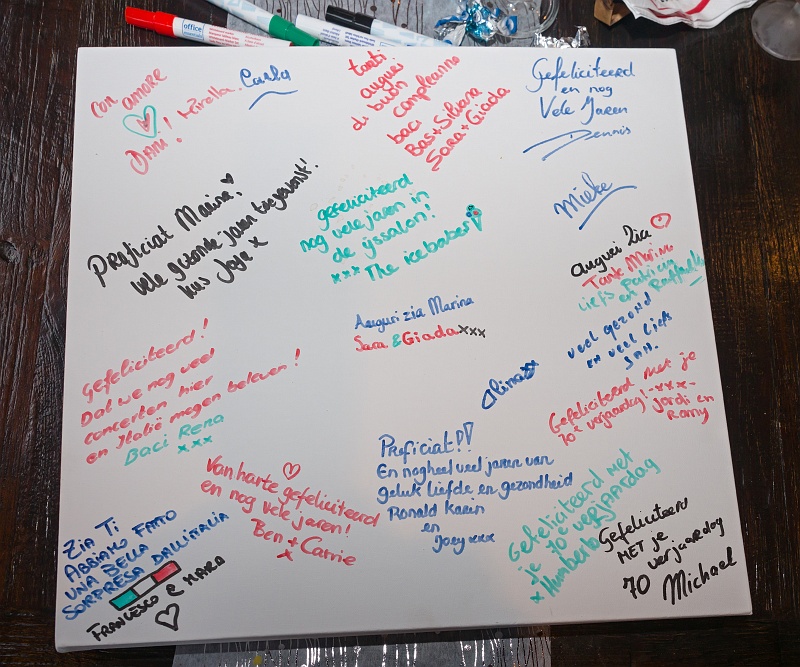 con amore
DAM! Mirella Carla
tanti
auguri
di buon
compleanno
baci
Bas+Silvana
Sara+Giada
Gefeliciteerd
en nog
Vele Jaren
Dennis
Mieke
Proficiat Marina,
vele gezonde jaren toegewenst!
kus Josje x
gefeliciteerd
nog vele jaren in
de ijssalon!
xxx The icebabes
auguri zia
Tante Marina
Liefs Patricia
en Raffaella
veel gezond
en veel liefs
Auguri zia Marina
Sara & Giada xxx
Alina
Gefeliciteerd!
Dat we nog veel
concerten hier
en Italië mogen beleven!
Baci Rena
xxx
Gefeliciteerd met je
70e verjaardag! -xxx-
Jordi en
Romy
Proficiat!!
En nog heel veel jaren van
geluk liefde en gezondheid
Ronald Karin
en
Joey xxx
Van harte gefeliciteerd
en nog vele jaren!
Ben + Carrie
x
ZIA TI
ABBIAMO FATTO
UNA BELLA
SORPRESA DALL'ITALIA
FRANCESCO e MARA
Gefeliciteerd met
je 70e verjaardag
x Humberto
Gefeliciteerd
MET je
verjaardag
70 Michael
office